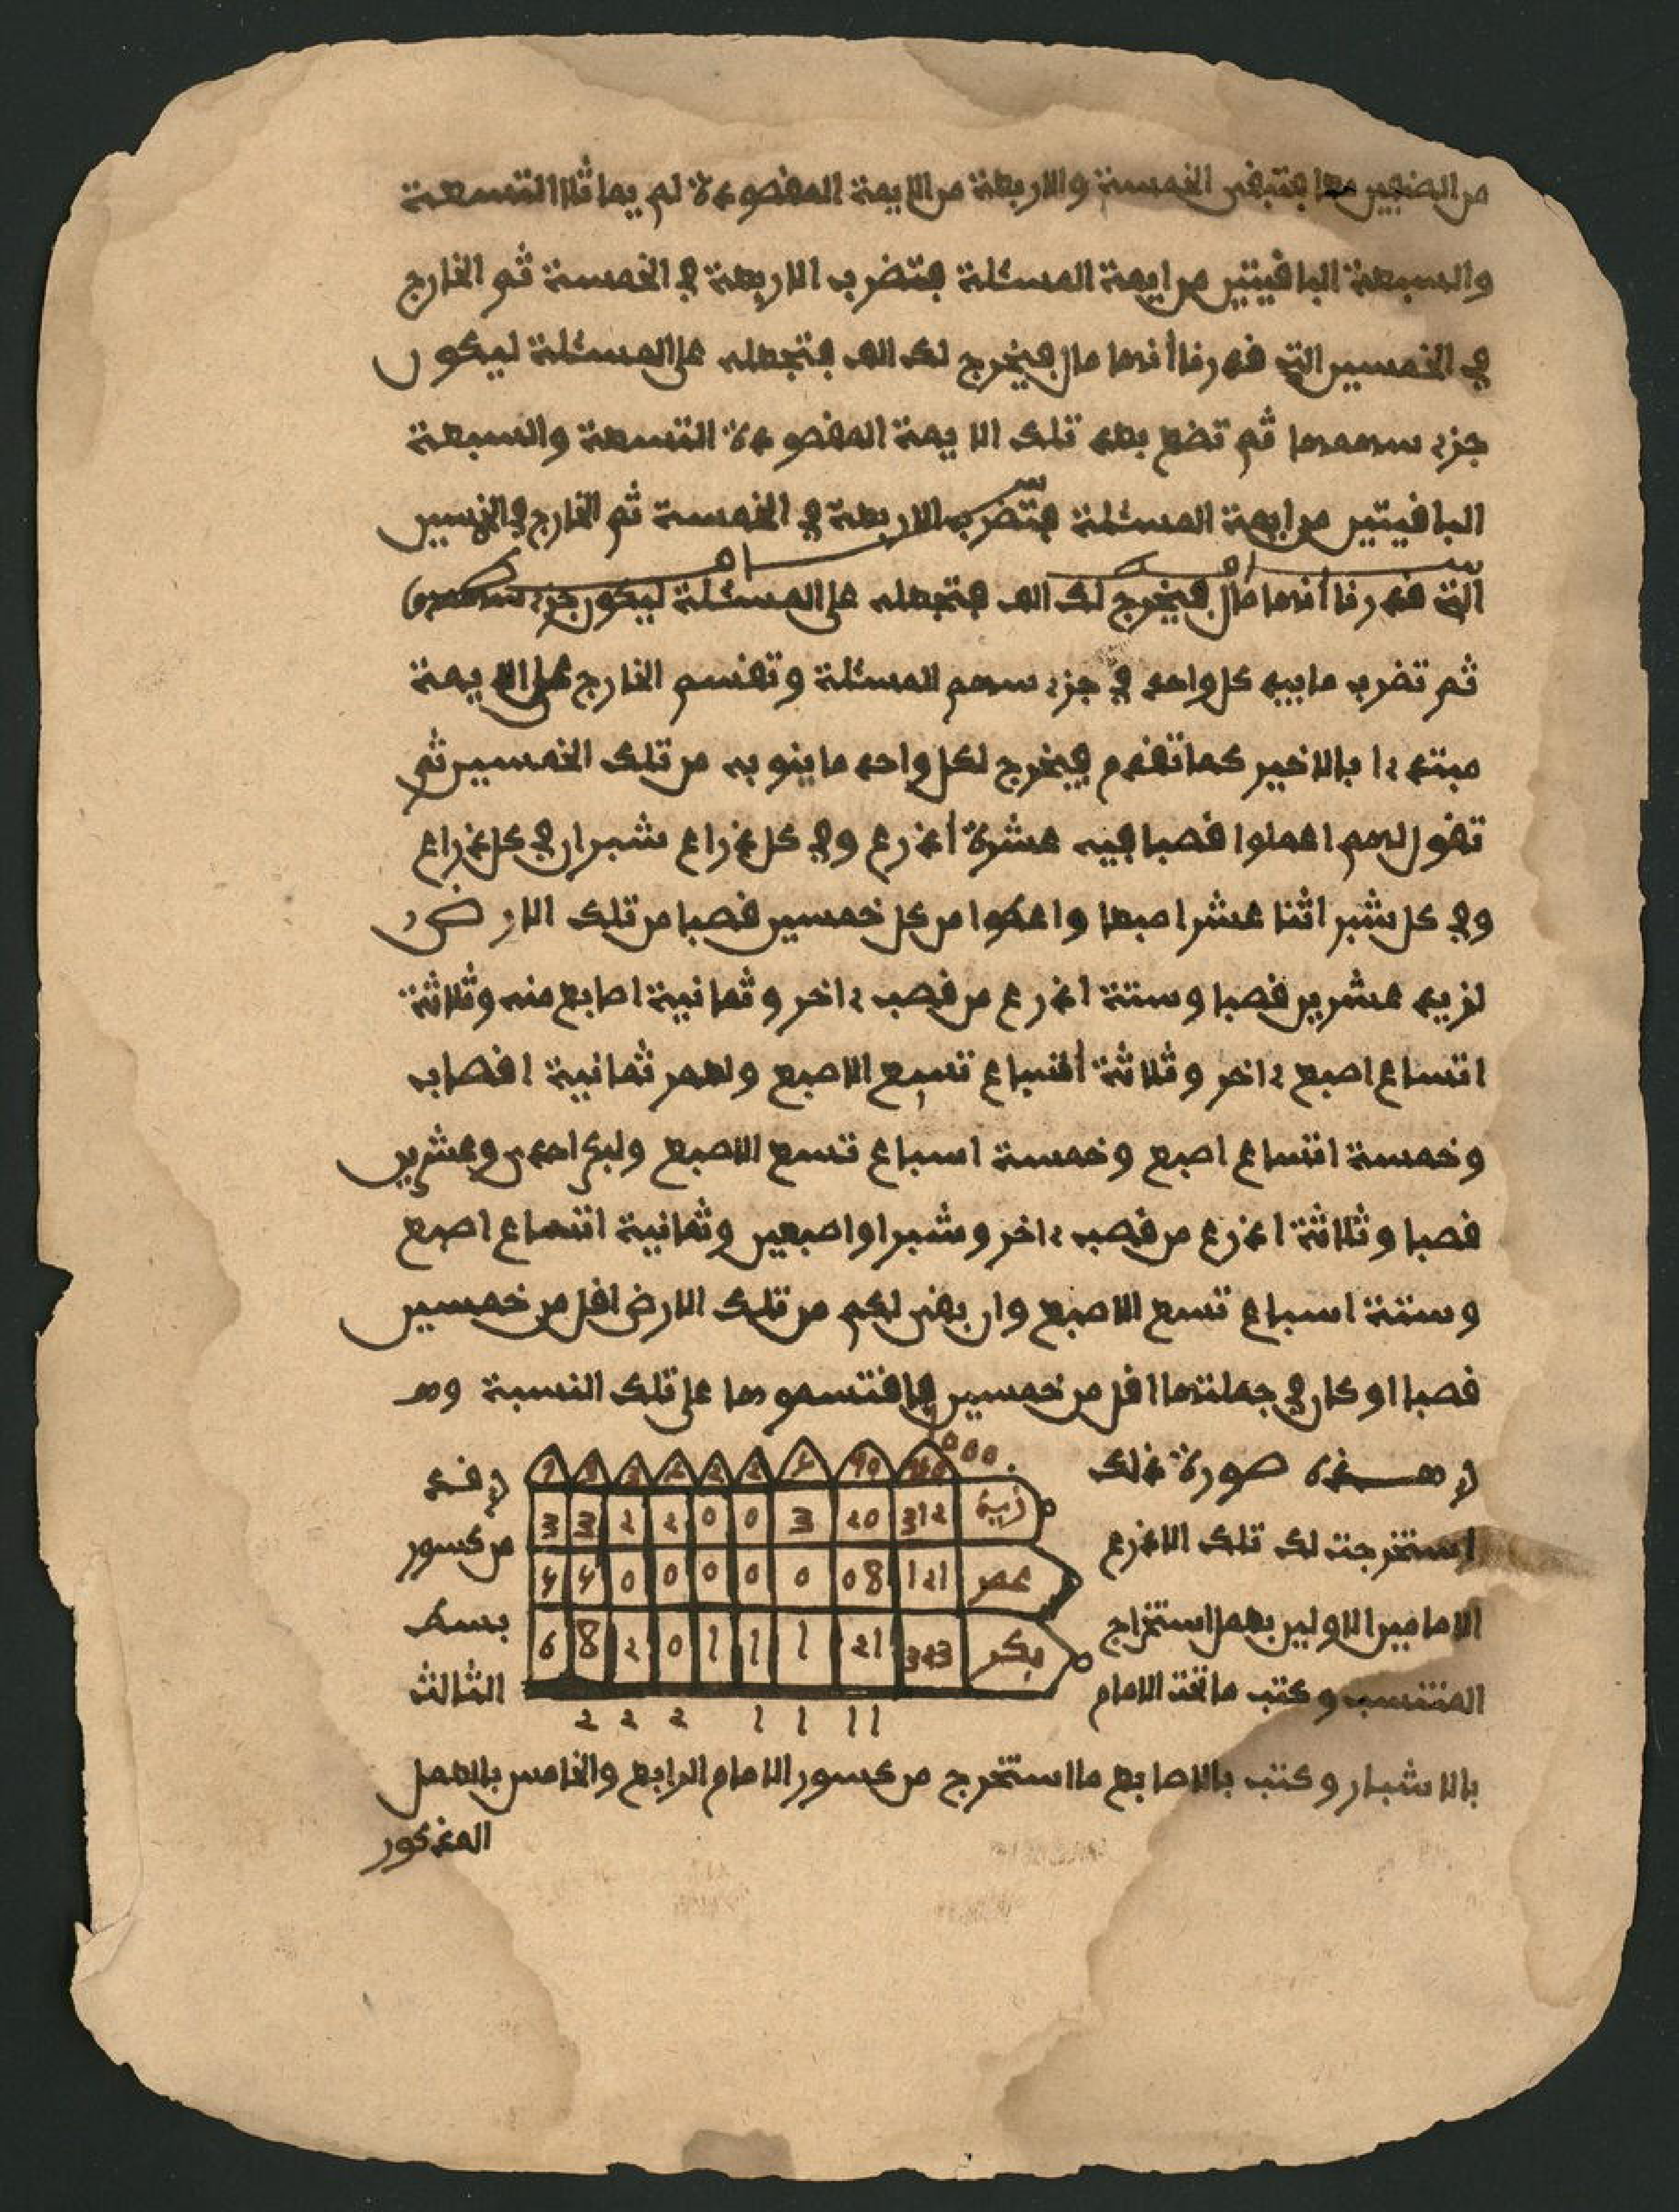 من الضنجين معا فتبقى الخمسة والاربعة من الايمة المقصودة لم يماثلا التسعة
والسبعة الباقيتين من ايمة المسئلة فتضرب الاربعة في الخمسة ثم الخارج
في الخمسين التي قدرنا أنها مال فيخرج لك الف فتجعله على المسئلة ليكون
جزء سهمها ثم تضع بعد تلك الايمة المقصودة التسعة والسبعة
الباقيتين من ايمة المسئلة فتضرب الاربعة في الخمسة ثم الخارج في الخمسين
التي قدرنا أنها مال فيخرج لك الف فتجعله على المسئلة ليكون جزء سهمها
ثم تضرب ما بيد كل واحد في جزء سهم المسئلة وتقسم الخارج على الايمة
مبتدءا بالاخير كما تقدم فيخرج لكل واحد ما ينوبه من تلك الخمسين ثم
تقول لهم اعملوا قصبا فيه عشرة أذرع وفي كل ذراع شبران في كل ذراع
وفي كل شبر اثنا عشر اصبعا واعطوا من كل خمسين قصبا من تلك الارض
لزيد عشرين قصبا وستة اذرع من قصب ءاخر وثمانية اصابع منه وثلاثة
اتساع اصبع ءاخر وثلاثة أسباع تسع الاصبع ولعمر ثمانية اقصاب
وخمسة اتساع اصبع وخمسة اسباع تسع الاصبع ولبكر احدى وعشرين
قصبا وثلاثة اذرع من قصب ءاخر وشبرا واصبعين وثمانية اتساع اصبع
وستة اسباع تسع الاصبع وان بقى لكم من تلك الارض اقل من خمسين
قصبا او كان في جملتها اقل من خمسين فاقتسموها على تلك النسبة وهـ
ـذه صورة ذلك
وقد
استخرجت لك تلك الاذرع
من كسور
الامامين الاولين بعمل استخراج
بسط
المنتسب وكتب ما تحت الامام
الثالث
1000
زيد 312 20 3 0 0 2 2 3 3
عمر 121 08 0 0 0 0 0 4 4
بكر 323 21 1 1 1 0 2 8 6
11 1 1 2 2 2
بالاشبار وكتب بالاصابع ما استخرج من كسور الامام الرابع والخامس بالعمل
المذكور